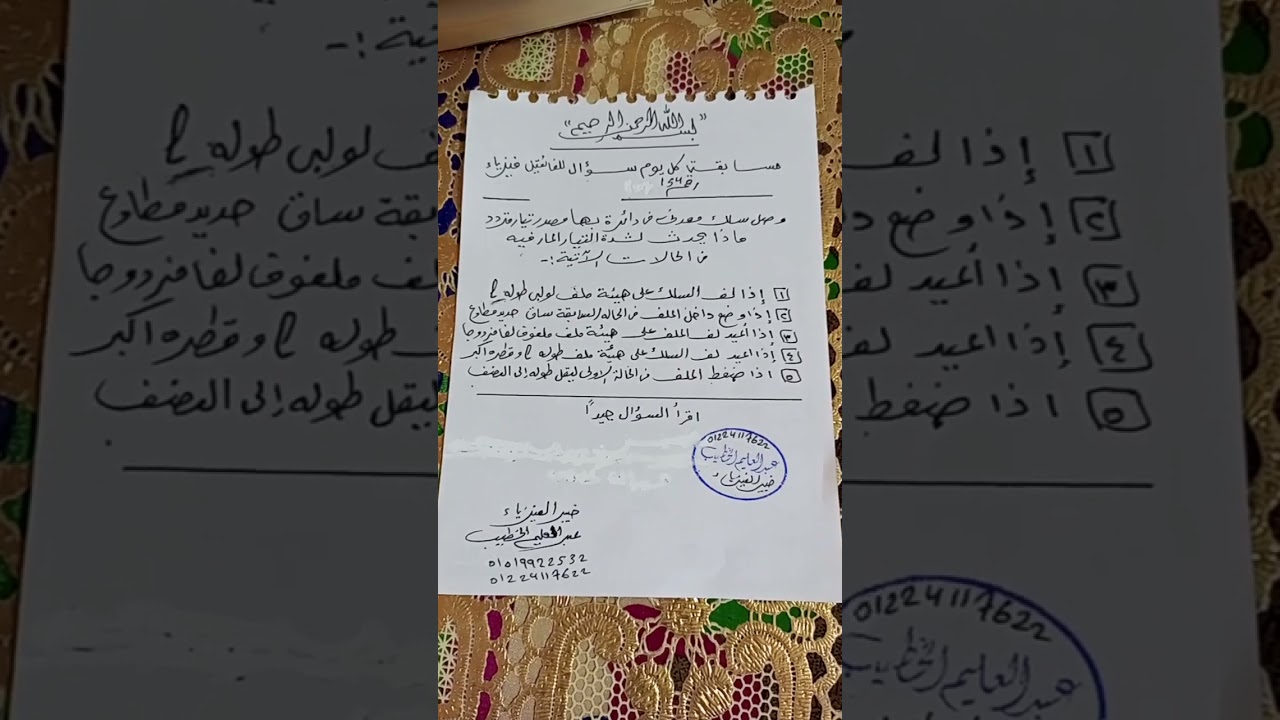 "بسم الله الرحمن الرحيم"
مسابقة كل يوم سؤال للفائقين فيزياء
رقم
وصل سلك معدني في دائرة بها مصدر تيار متردد
ماذا يحدث لشدة التيار المار فيه
في الحالات الآتية :-
١ إذا لف السلك على هيئة ملف لولبي طوله ℓ
٢ إذا وضع داخل الملف في الحالة السابقة ساق حديد مطاوع
٣ إذا أعيد لف الملف على هيئة ملف ملفوف لفا مزدوجا
٤ إذا اعيد لف السلك على هيئة ملف طوله ℓ وقطره اكبر
٥ اذا ضغط الملف في الحالة الاولى ليقل طوله إلى النصف
اقرأ السؤال جيدًا
01224117622
عبد العليم الخطيب
خبير الفيزياء
خبير الفيزياء
عبد العليم الخطيب
01019922532
01224117622